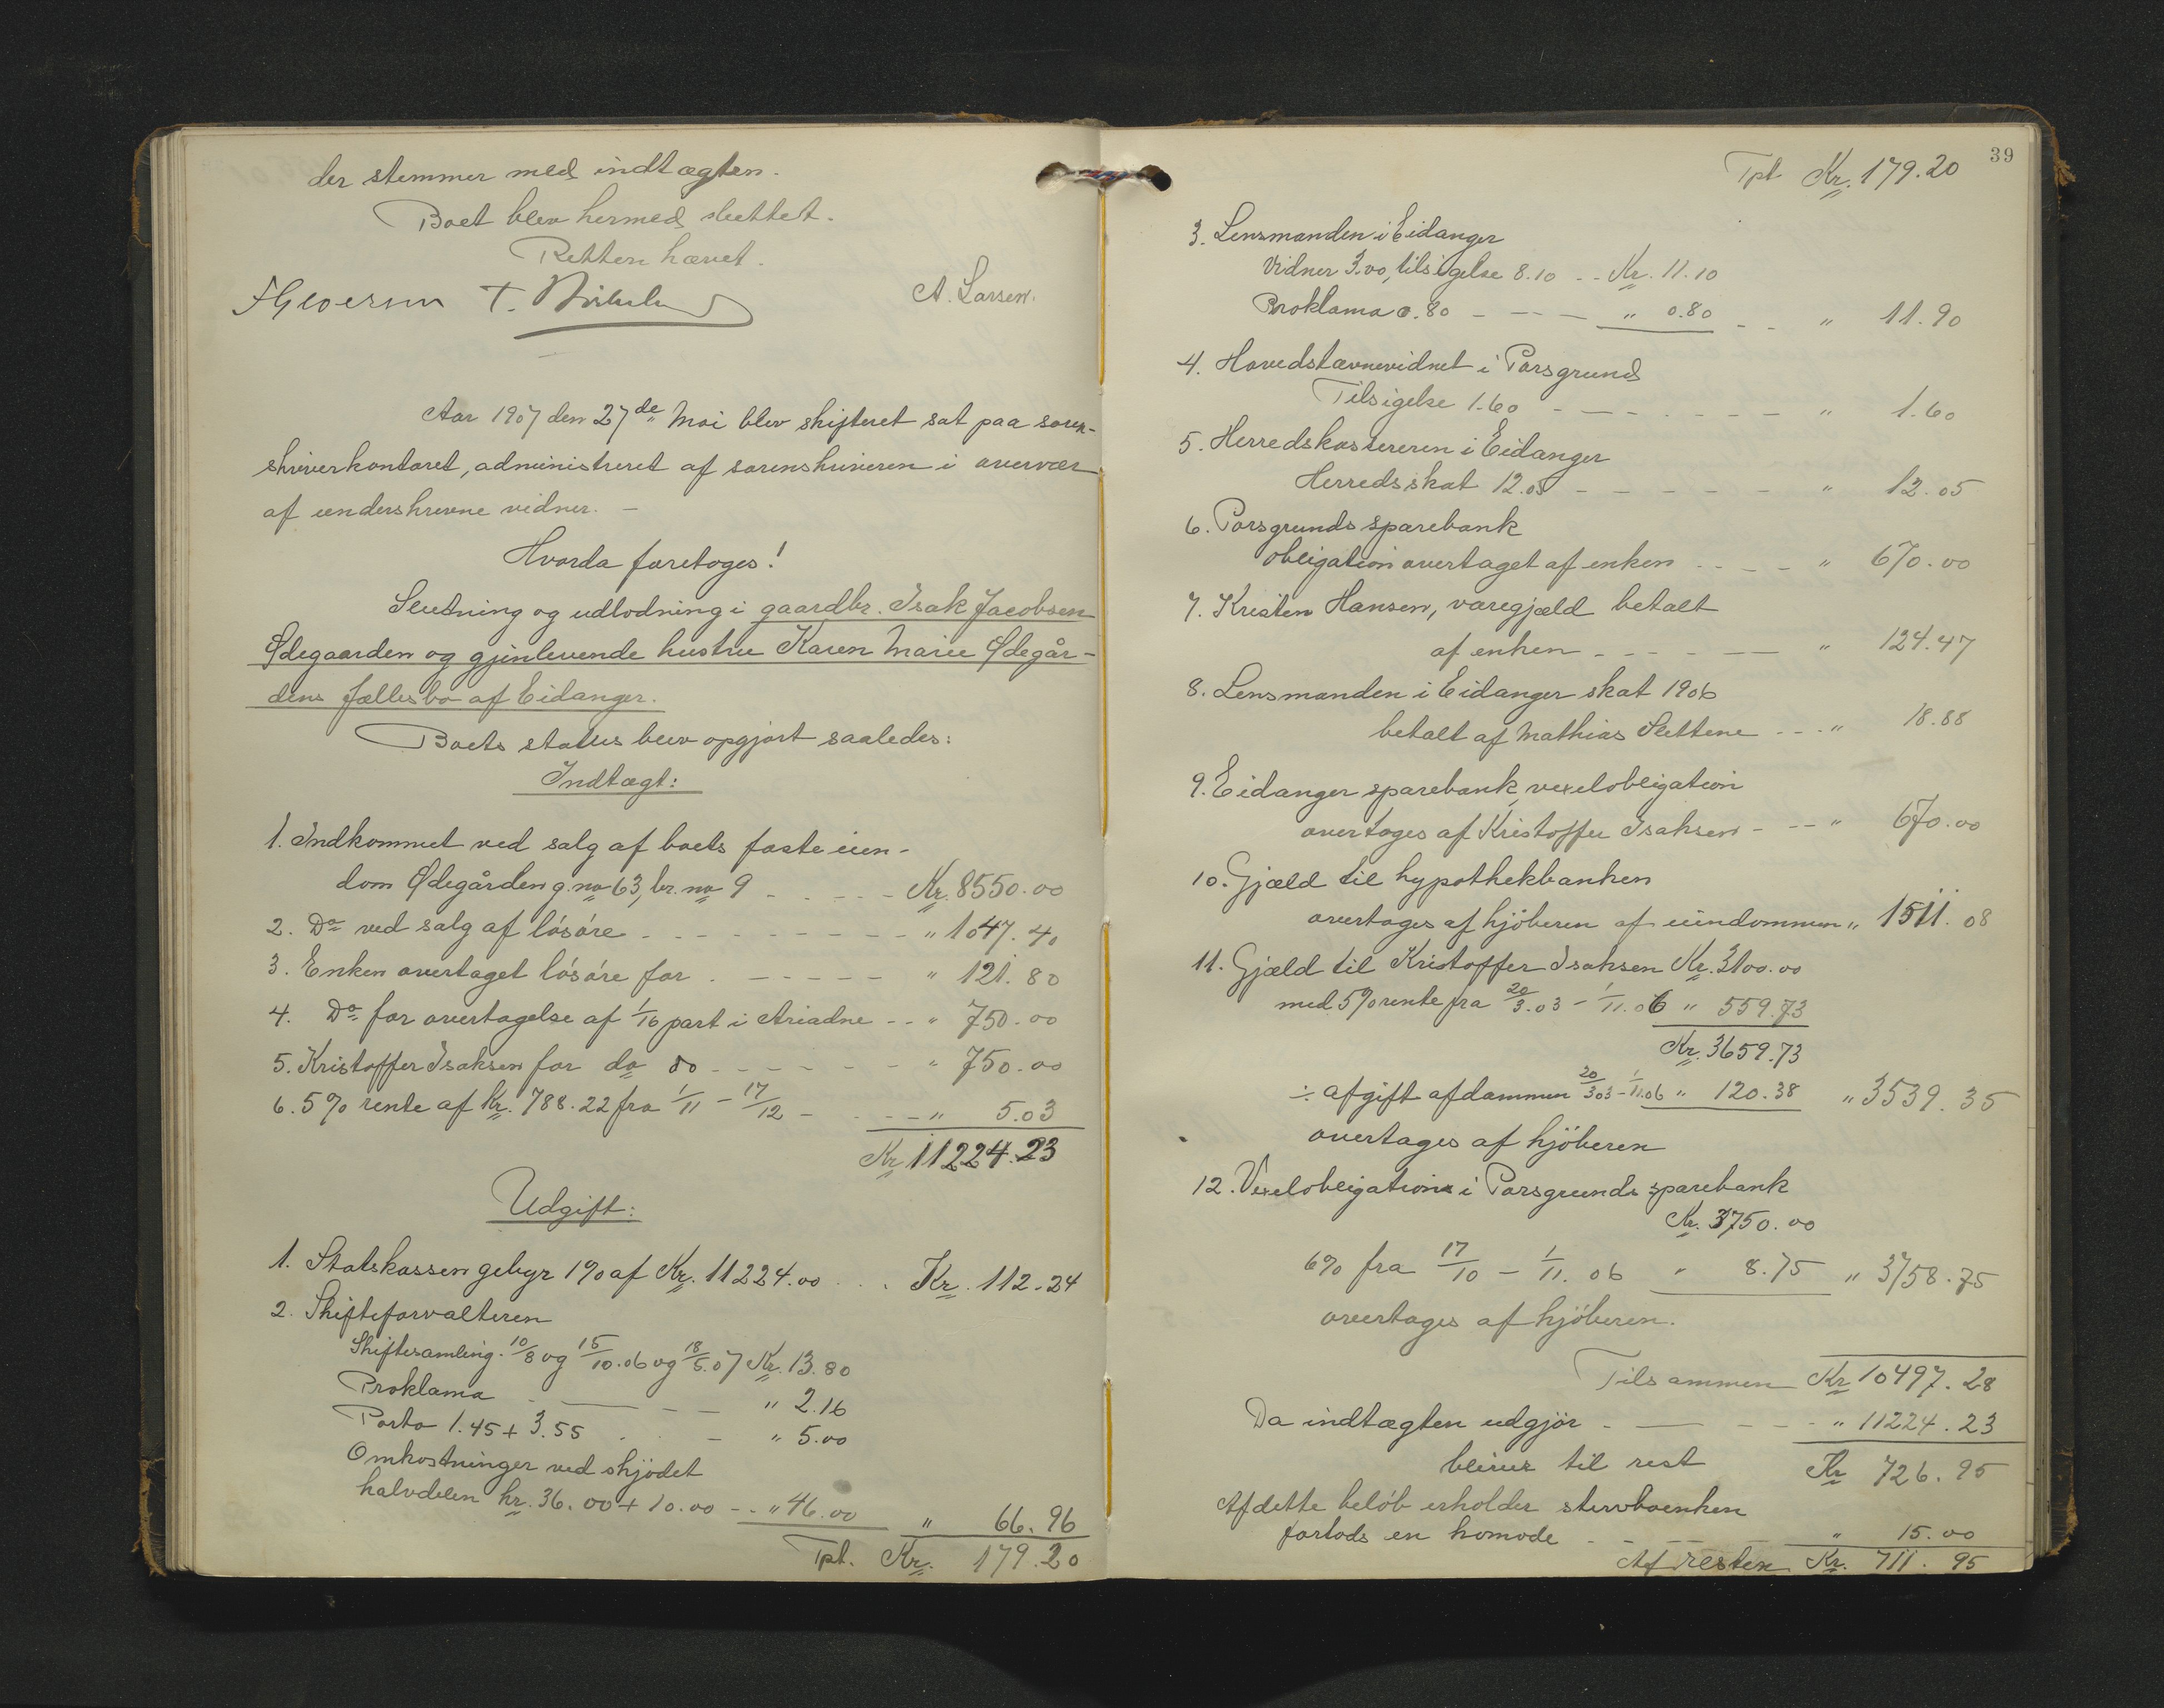 der stemmer med indtægten.
Boet blev hermed sluttet.
Retten hævet.
A. Larsen.
Aar 1907 den 27de Mai blev skifteret sat paa soren-
skriverkontoret, administreret af sorenskriveren i overvær
af underskrevne vidner. –
Hvorda foretoges!
Slutning og udlodning i gaardbr. Isak Jacobsen
Ødegaarden og gjenlevende hustru Karen Marie Ødegår-
dens fællesbo af Eidanger.
Boets status blev opgjort saaledes:
Indtægt:
1. Indkommet ved salg af boets faste eien-
dom Ødegården g.no 63, br. no 9 - - - - - Kr. 8550.00
2. Do ved salg af løsøre - - - - - - - - - " 1047.40
3. Enken overtaget løsøre for - - - - - - " 121.80
4. Do for overtagelse af 1/16 part i Ariadne - - " 750.00
5. Kristoffer Isaksen for do do - - - - - - " 750.00
6. 5% rente af Kr. 788.22 fra 1/11 – 17/12 - - - - " 5.03
Kr 11224.23
Udgift:
1. Statskassen gebyr 1% af Kr. 11224.00 . . . Kr. 112.24
2. Skifteforvalteren
Skiftesamling. 10/8 og 15/10.06 og 18/5.07 Kr. 13.80
Proklama - - - - " 2.16
Porto 1.45 + 3.55 . . - " 5.00
Omkostninger ved skjødet
halvdelen kr. 36.00 + 10.00 - - " 46.00 " 66.96
Tpt. Kr. 179.20
39
Tpt Kr. 179.20
3. Lensmanden i Eidanger
Vidner 3.00, tilsigelse 8.10 - - Kr. 11.10
Proklama 0.80 - - - - " 0.80 - - " 11.90
4. Hovedstævnevidnet i Porsgrund
Tilsigelse 1.60 - - - - - - - " 1.60
5. Herredskassereren i Eidanger
Herredsskat 12.05 - - - - - - " 12.05
6. Porsgrunds sparebank
obligation overtaget af enken - - - - " 670.00
7. Kristen Hansen, varegjæld betalt
af enken - - - - - - " 124.47
8. Lensmanden i Eidanger skat 1906
betalt af Mathias Slettene - - - " 18.88
9. Eidanger sparebank, vexelobligation
overtages af Kristoffer Isaksen - - - " 670.00
10. Gjæld til hypothekbanken
overtages af kjøberen af eiendommen " 1511.08
11. Gjæld til Kristoffer Isaksen Kr. 3100.00
med 5% rente fra 20/3.03 – 1/11.06 " 559.73
Kr. 3659.73
÷ afgift af dammen 20/3 03 – 1/11.06 " 120.38 " 3539.35
overtages af kjøberen
12. Vexelobligation i Porsgrunds sparebank
Kr. 3750.00
6% fra 17/10 – 1/11. 06 " 8.75 " 3758.75
overtages af kjøberen.
Tilsammen Kr 10497.28
Da indtægten udgjør - - - - - " 11224.23
bliver til rest Kr 726.95
Af dette beløb erholder stervboenken
forlods en komode - - - - - " 15.00
Af resten Kr. 711.95